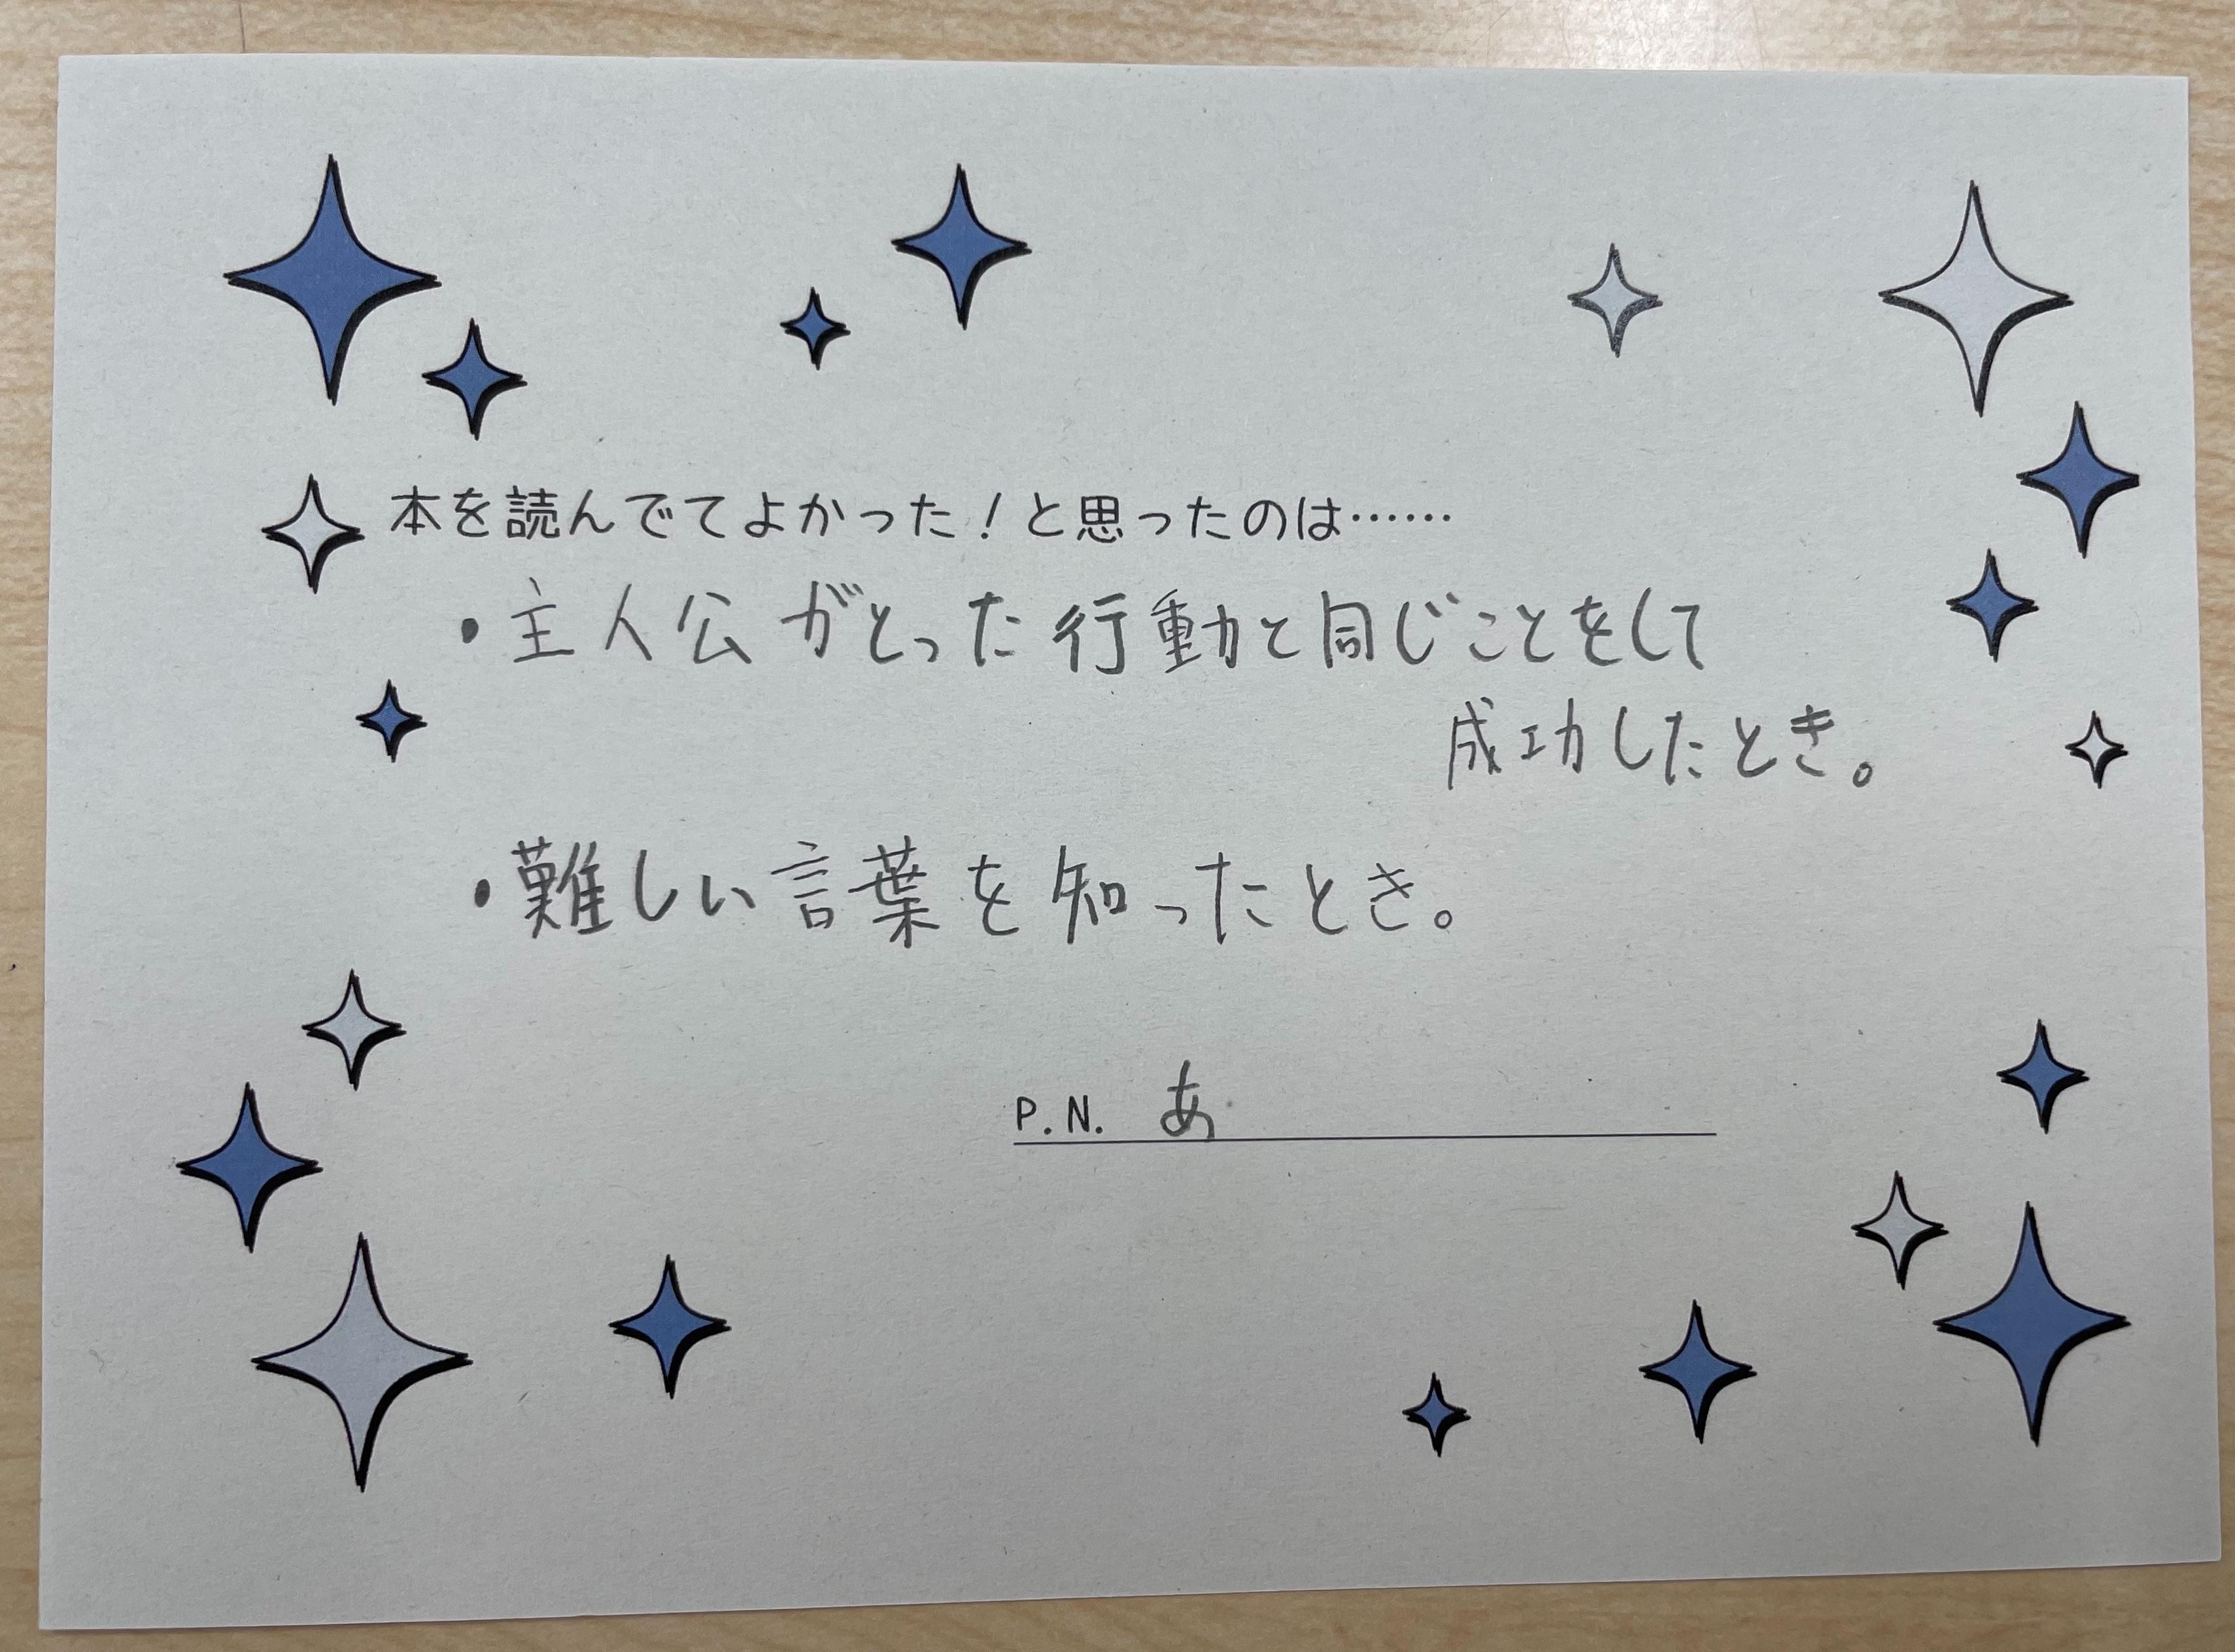 本を読んでてよかった！と思ったのは……
・主人公がとった行動と同じことをして
成功したとき。
・難しい言葉を知ったとき。
P.N. あ